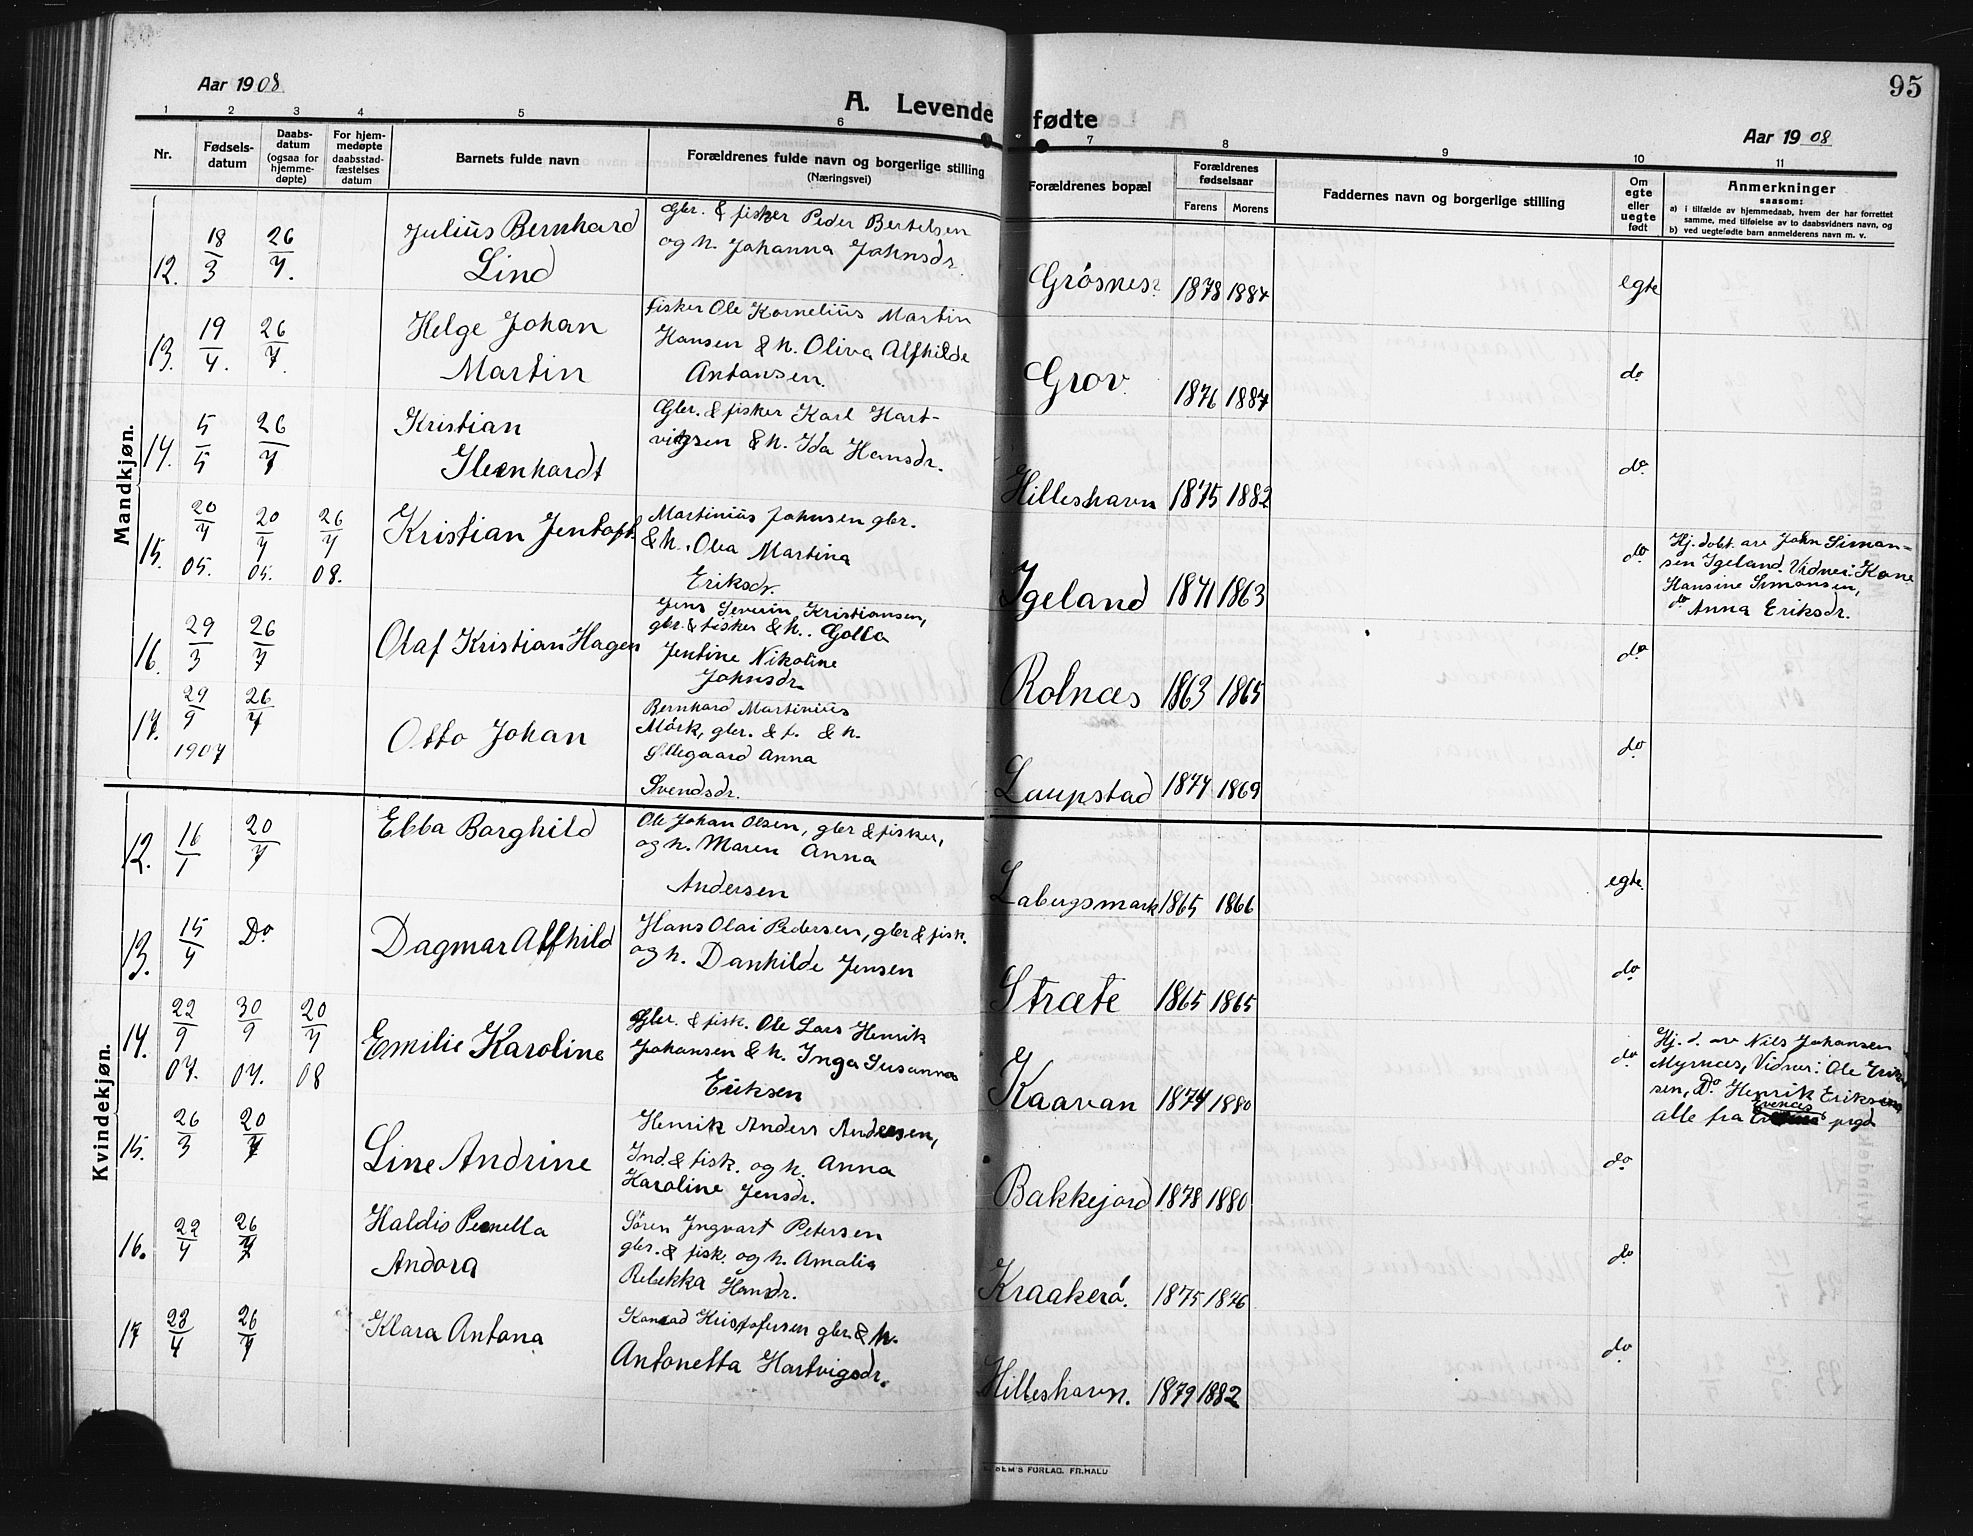 95
Aar 1908
A. Levende fødte
Aar 1908
1 2 3 4 5 6 7 8 9 10 11
Nr.
Fødsels-
datum
Daabs-
datum
(ogsaa for
hjemme-
døpte)
For hjem-
medøpte
daabsstad-
fæstelses
datum
Barnets fulde navn
Forældrenes fulde navn og borgerlige stilling
(Næringsvei)
Forældrenes bopæl
Forældrenes
fødselsaar
Farens Morens
Faddernes navn og borgerlige stilling
Om
egte
eller
uegte
født
Anmerkninger
saasom:
a) i tilfælde av hjemmedaab, hvem der har forrettet
samme, med tilføielse av to daabsvidners navn, og
b) ved uegtefødte barn anmelderens navn m. v.
Mandkjøn.
12. 18/3 26/7.
Julius Bernhard
Lind
Gbr. & fisker Peder Bertelsen
og h. Johanna Johnsdr.
Grøsnes 1878 1887 egte
13. 19/4. 26/7.
Helge Johan
Martin
Fisker Ole Kornelius Martin
Hansen & h. Oliva Alfhilde
Antonsen.
Grov 1876 1887 do
14. 5/5 26/7
Kristian
Gbr. & fisker Karl Hart-
vigsen & h. Ida Hansdr.
Hilleshavn 1875 1882 do
15. 20/7 05. 20/7 05. 26/7 08.
Kristian Jentoft
Martinius Johnsen gbr.
& h. Olea Martina
Eriksdr.
Igeland 1871 1863 do
Hj. døbt. av John Siman=
sen Igeland. Vidner: Kone
Hansine Simonsen,
do Anna Eriksdr.
16. 29/3 26/7
Olaf Kristian Hagen
Jens Severin Kristiansen,
gbr. & fisker & h.
Jentine Nikoline
Johnsdr.
Rolnæs 1863 1865 do
17. 29/9 1907 26/7
Otto Johan
Bernhard Martinius
Mörk, gbr. & f. & h.
Ellegaard Anna
Svendsdr.
Laupstad 1874 1869 do
Kvindekjøn.
12. 16/1 20/7
Ebba Borghild
Ole Johan Olsen, gbr & fisker,
og h. Maren Anna
Andersen
Labergsmark 1865 1866 egte
13. 15/4 Do
Dagmar Alfhild
Hans Olai Pedersen, gbr & fisk.
og h. Danhilde Jensen
Stræte 1865 1865 do
14. 22/9 07. 30/9 07. 20/7 08
Emilie Karoline
Gbr. & fisk. Ole Lars Henrik
Johansen & h. Inga Susanna
Eriksen
Kaavan 1874 1880 do
Hj. d. av Nils Johansen
Myrnæs, Vidner: Ole Erik-
sen, Do Henrik Eriksen
alle fra Evenæs prgd
15. 26/3 20/7
Line Andrine
Henrik Anders Andersen,
Ind. & fisk. og h. Anna
Karoline Jensdr.
Bakkejord 1878 1880 do
16. 22/4 26/7
Haldis Pernella
Andora
Sören Ingvart Petersen
gbr. & fisk. og h. Amalia
Rebekka Hansdr.
Kraakerö. 1875 1876 do
17 23/4 26/7
Klara Antona
Konrad Kristofersen gbr. & h.
Antonetta Hartvigsdr.
Hilleshavn. 1879 1882 do
SEM'S FORLAG, FR.HALD